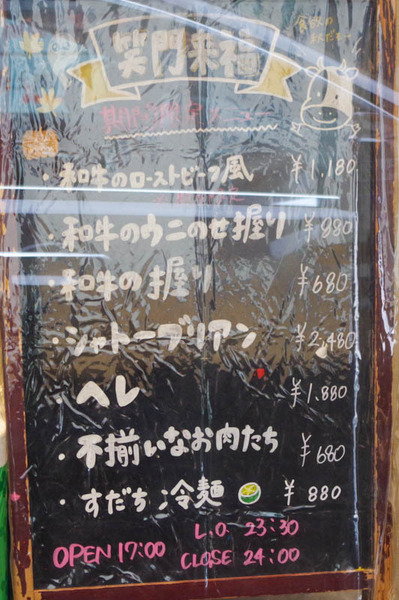 笑門来福
・和牛のローストビーフ風 ¥1,180
・和牛のウニのせ握り ¥880
・和牛の握り ¥680
・シャトーブリアン ¥2,480
・ヘレ ¥1,880
・不揃いなお肉たち ¥680
・すだち冷麺 ¥880
OPEN 17:00 L.O. 23:30
CLOSE 24:00